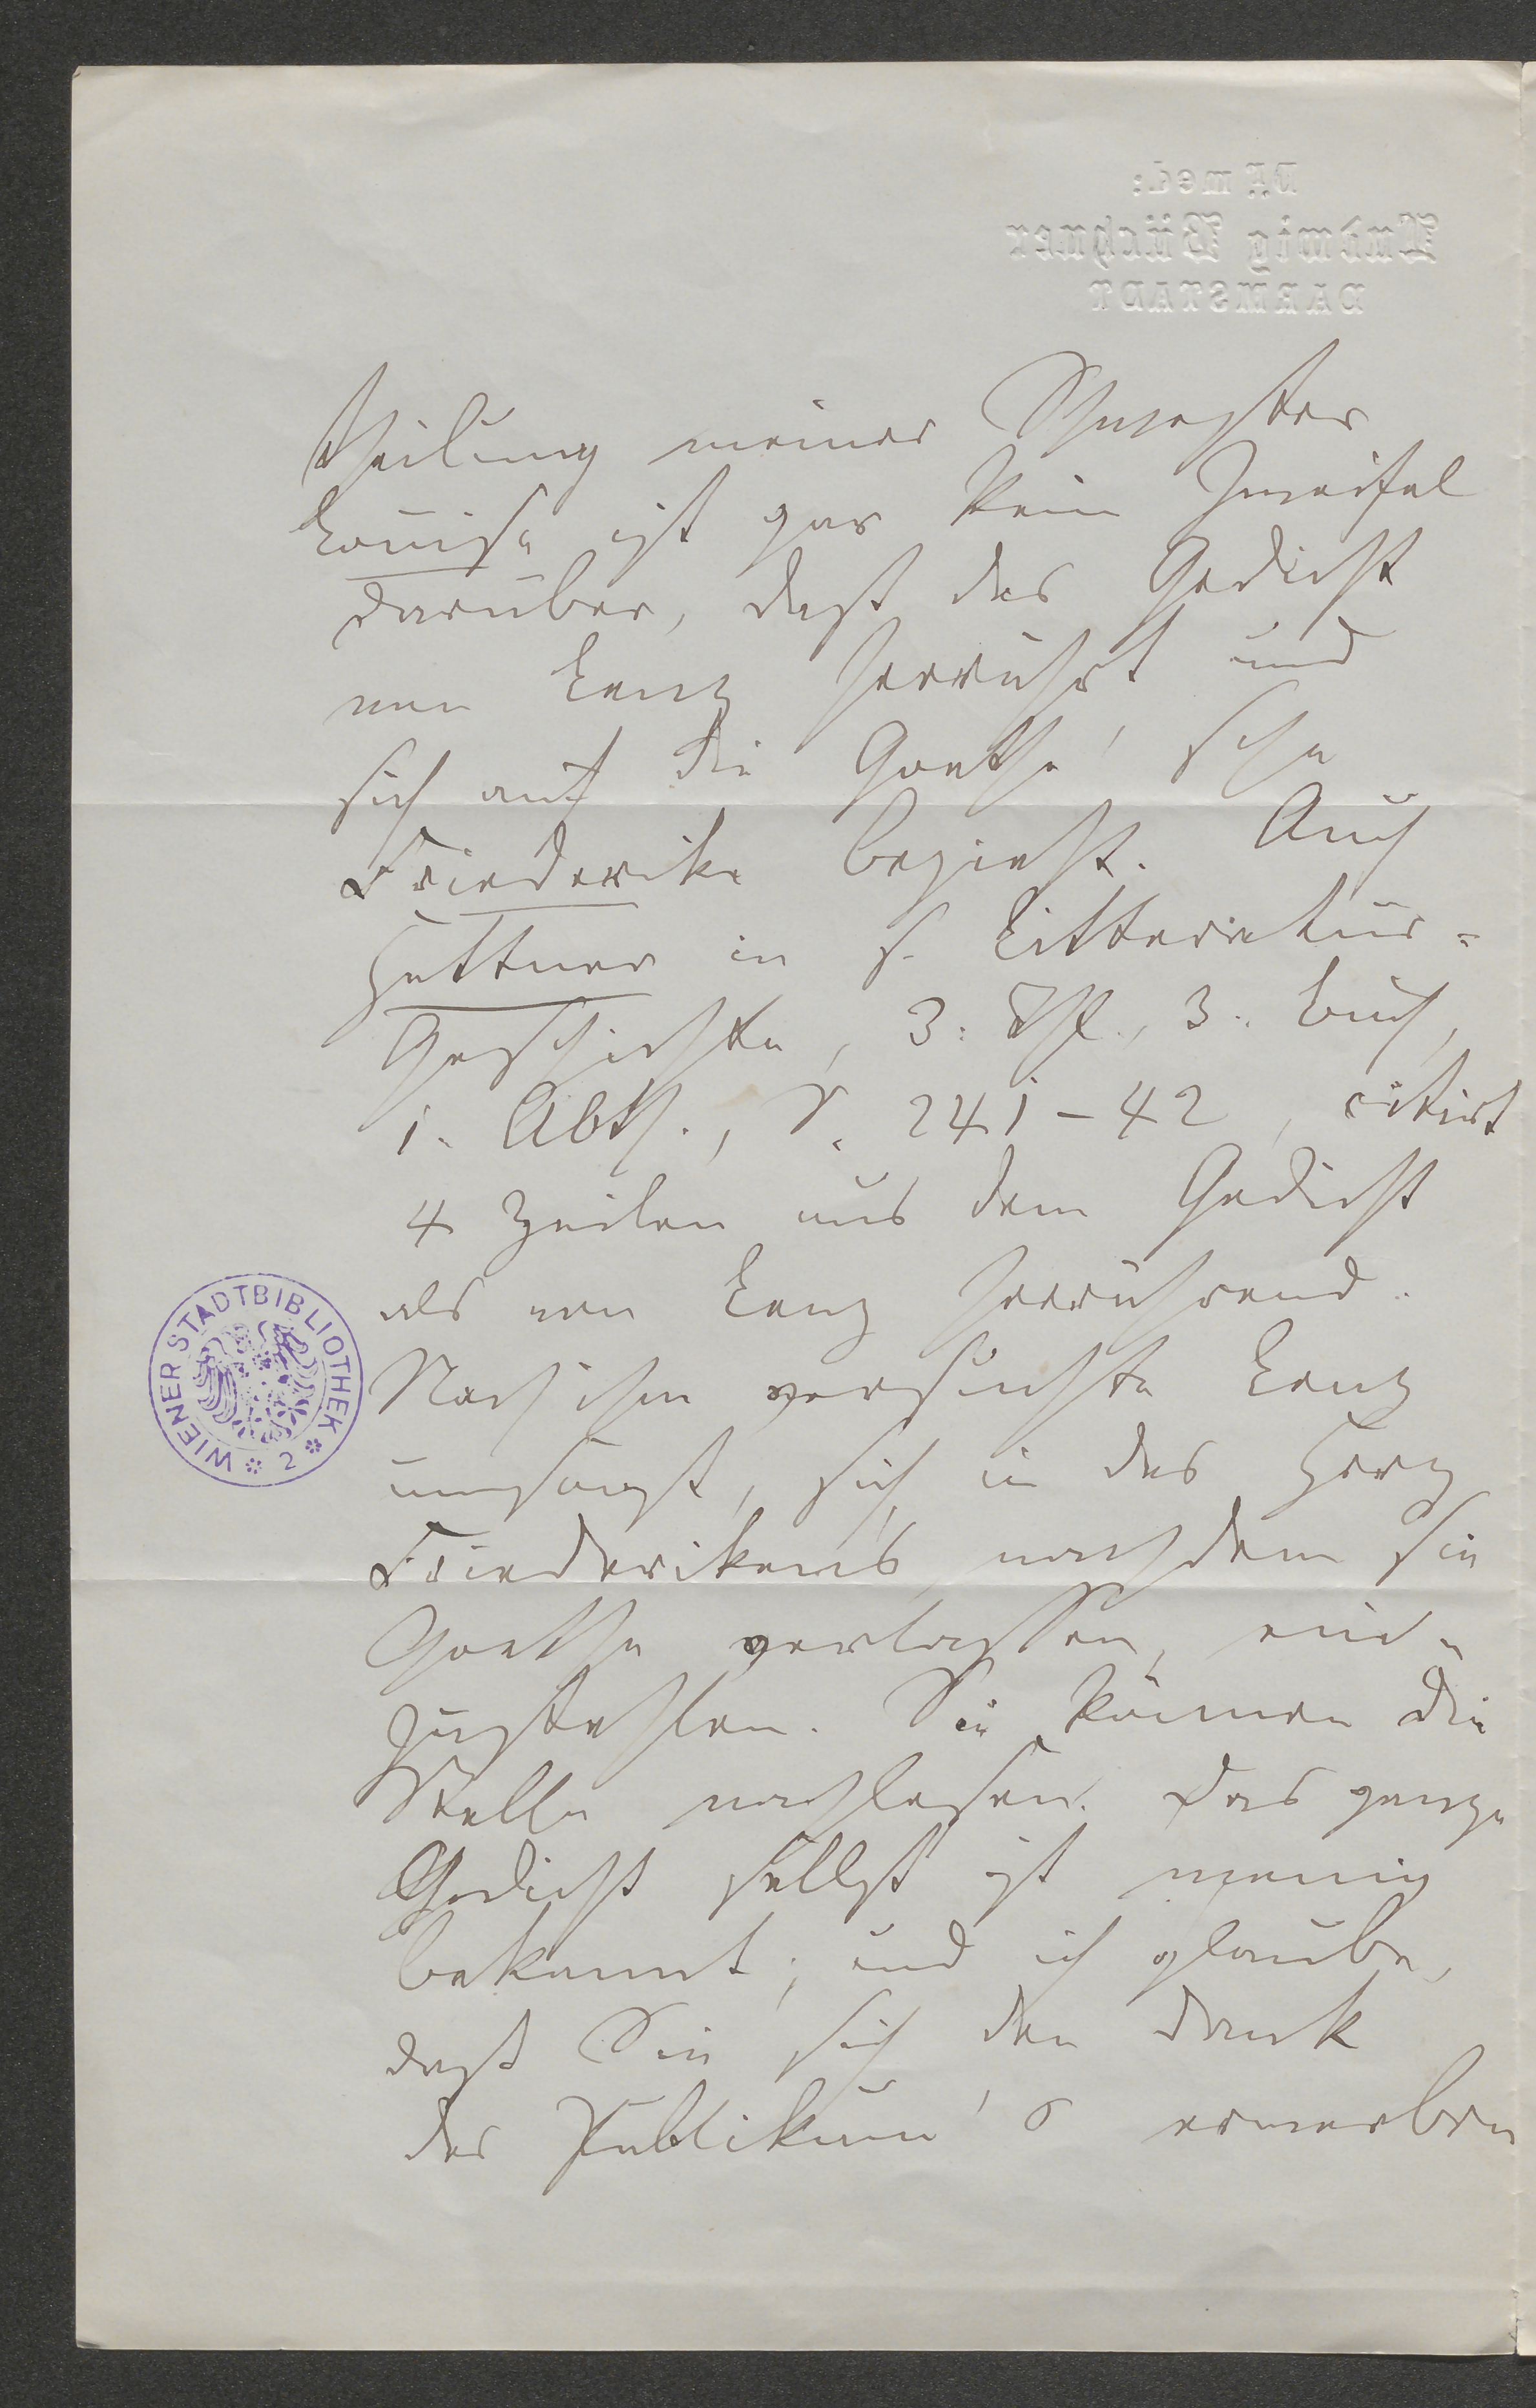 DR med:
Ludwig Büchner
DARMSTADT
theilung meiner Schwester
Louise ist gar kein Zweifel
darüber, daß das Gedicht
von Lenz herrührt und
sich auf die Goethe'sche
Friederike bezieht. Auch
Hettner in s. Litteratur-
Geschichte, 3. Thl., 3. Buch,
1. Abth., S. 241-42, citirt
4 Zeilen aus dem Gedicht
als von Lenz herrührend.
Nach ihm versuchte Lenz
umsonst, sich in das Herz
Friederikens, nachdem sie
Goethe verlassen, ein-
zustehlen. Sie können die
Stelle nachlesen. Das ganze
Gedicht selbst ist wenig
bekannt; und ich glaube,
daß Sie sich den Dank
des Publikum's erwerben
WIENER STADTBIBLIOTHEK * 2 *